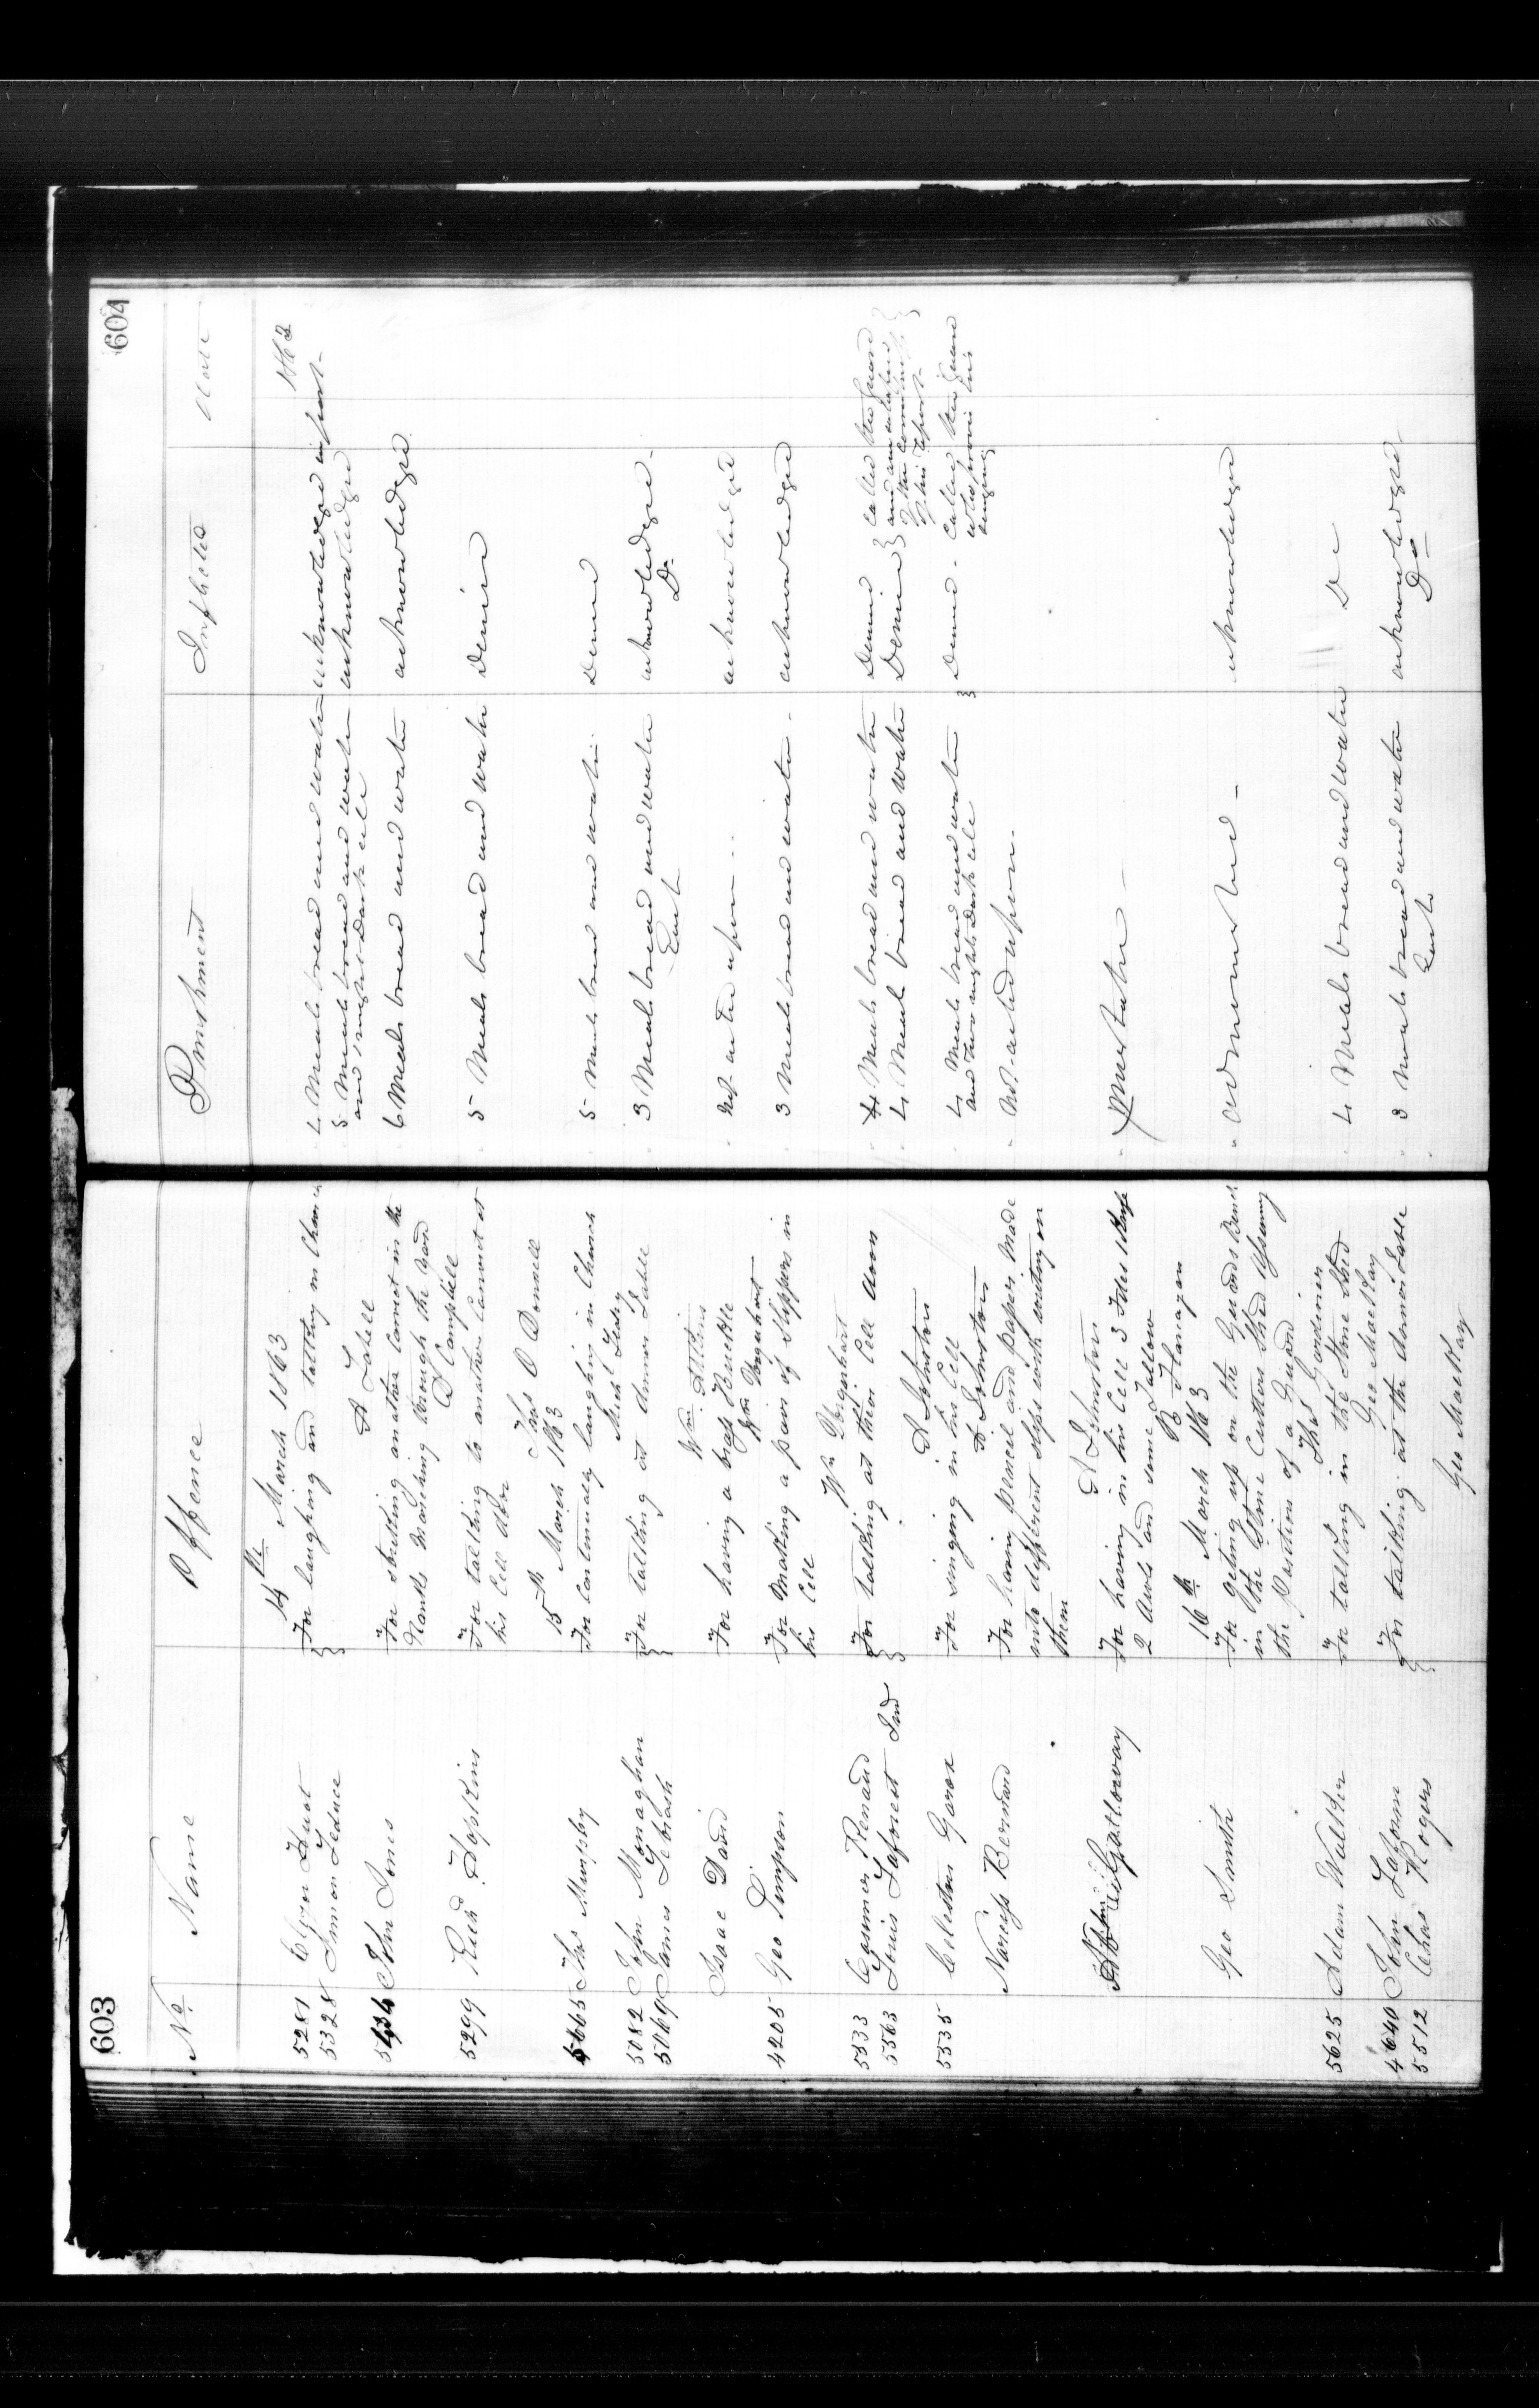 603
No. Name Offence
14th March 1863
5281 Elgear Huot } For laughing and talking in Church
5328 Simon Leduc }
A Labell
John Jones For striking another Convict in the
Ranks marching through the Yard
D Campbell
5299 Richd Hopkins For talking to another Convict at
his Cell door
Thos O Donnell
15th March 1863
5665 Thos Murphy For Continualy laughin in Church
Mich Leahy
5082 John Monaghan } For talking at dinner Table
5069 James Lebrash }
Wm Atkins
Isaac David For having a brass Buckle
Wm Urquhart
4205 Geo Simpson For Making a pair of Slippers in
his Cell
Wm Urquhart
5333 Casimer Renaud } For talking at their Cell door
5563 Louis Laforest Ind }
A Johnston
5335 Celestin Garox For singing in his Cell
A Johnston
Narciss Bernard For having pencil and paper made
into different slips with writing on
them
A Johnston
Gathoway For having in his Cell 3 Files 1 Knife
2 Awls and some Tallow
B Flanagan
16th March 1863
Geo Smith For geting up on the Guards Bench
in the Stone Cutters Shed Assuming
the Position of a Guard
Thos Gardiner
5625 Adam Walker For talking in the Stone Shed
Geo MacKay
4640 John } For talking at the dinner Table
5512 Chas Rogers }
Geo MacKay
604
Punishment Inflicted Date
1863
4 Meals bread and water acknowledged in part
5 Meals bread and water acknowledged
and 1 night Dark cell
6 Meals bread and water acknowledged
5 Meals bread and water Denied
5 Meals bread and water Denied
3 Meals bread and water acknowledged
Each Do
Not acted upon acknowledged
3 Meals bread and water acknowledged
4 Meals bread and water Denied } Called the Guard
4 Meals bread and water Denied }
of his report
4 Meals bread and water Denied Called the Guard
and two nights Dark cell who proved his
singing
Not acted upon
Mistake
admonished acknowledged
4 Meals bread and water Do
3 Meals bread and water acknowledged
Each Do